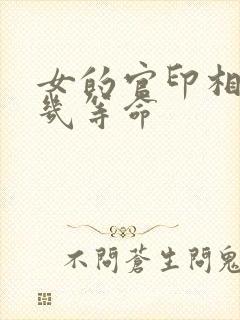 女的官印相
幾等命
不問蒼生問鬼